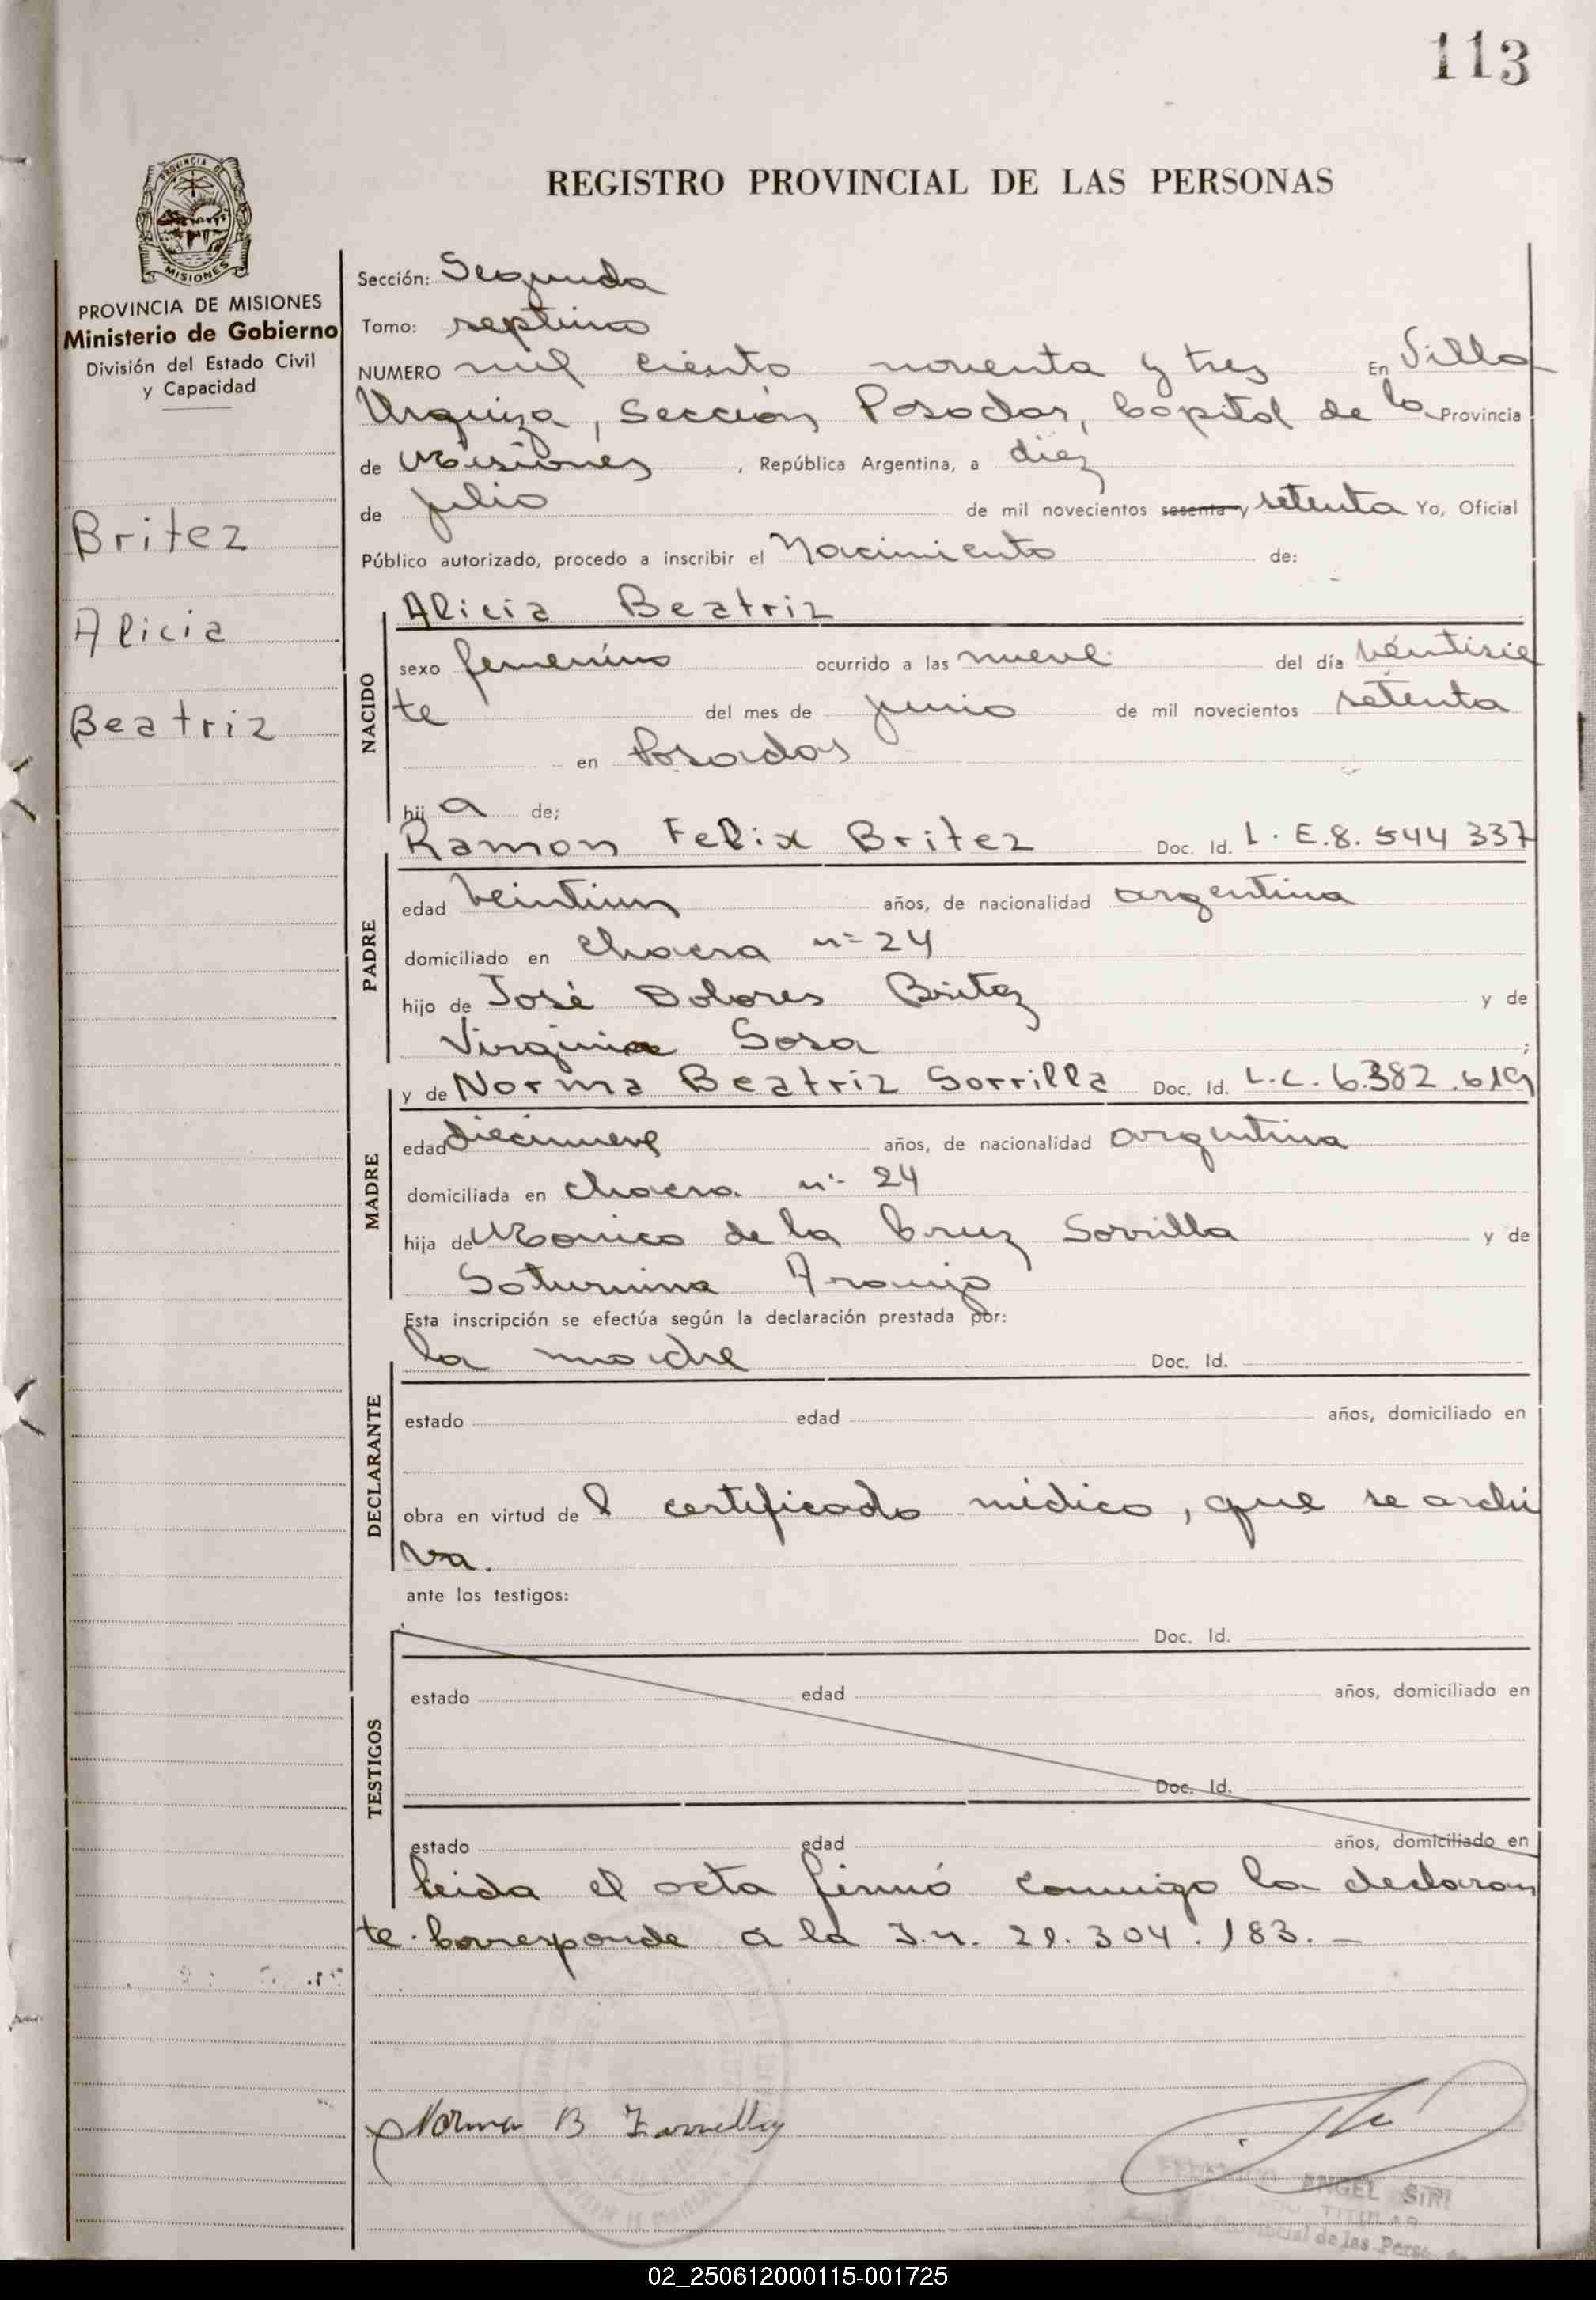 113
REGISTRO PROVINCIAL DE LAS PERSONAS
PROVINCIA DE
MISIONES
PROVINCIA DE MISIONES
Ministerio de Gobierno
División del Estado Civil
y Capacidad
Britez
Alicia
Beatriz
Sección: Segunda
Tomo: septimo
NUMERO mil ciento noventa y tres En Villa
Urquiza, Sección Posadas, Capital de la Provincia
de Misiones, República Argentina, a diez
de julio de mil novecientos sesenta y setenta Yo, Oficial
Público autorizado, procedo a inscribir el Nacimiento de:
NACIDO
Alicia Beatriz
sexo femenino ocurrido a las nueve del día veintisie
te del mes de junio de mil novecientos setenta
en Posadas
hij a de;
PADRE
Ramon Felix Britez Doc. Id. L.E.8.544 337
edad veintiun años, de nacionalidad argentina
domiciliado en chacra nº 24
hijo de José Dolores Britez y de
Virginia Sosa ;
MADRE
y de Norma Beatriz Sorrilla Doc. Id. L.C. 6.382.619
edad diecinueve años, de nacionalidad argentina
domiciliada en chacra nº 24
hija de Monico de la Cruz Sorrilla y de
Saturnina Araujo
Esta inscripción se efectúa según la declaración prestada por:
DECLARANTE
la madre Doc. Id.
estado edad años, domiciliado en
obra en virtud de l certificado médico, que se archi
va.
ante los testigos:
TESTIGOS
Doc. Id.
estado edad años, domiciliado en
Doc. Id.
estado edad años, domiciliado en
leida el acta firmó conmigo la declaran
te. Corresponde a la I.n. 21.304.183.—
Norma B
ANGEL SIRI
TITULAR
Provincial de las Pers
02_250612000115-001725